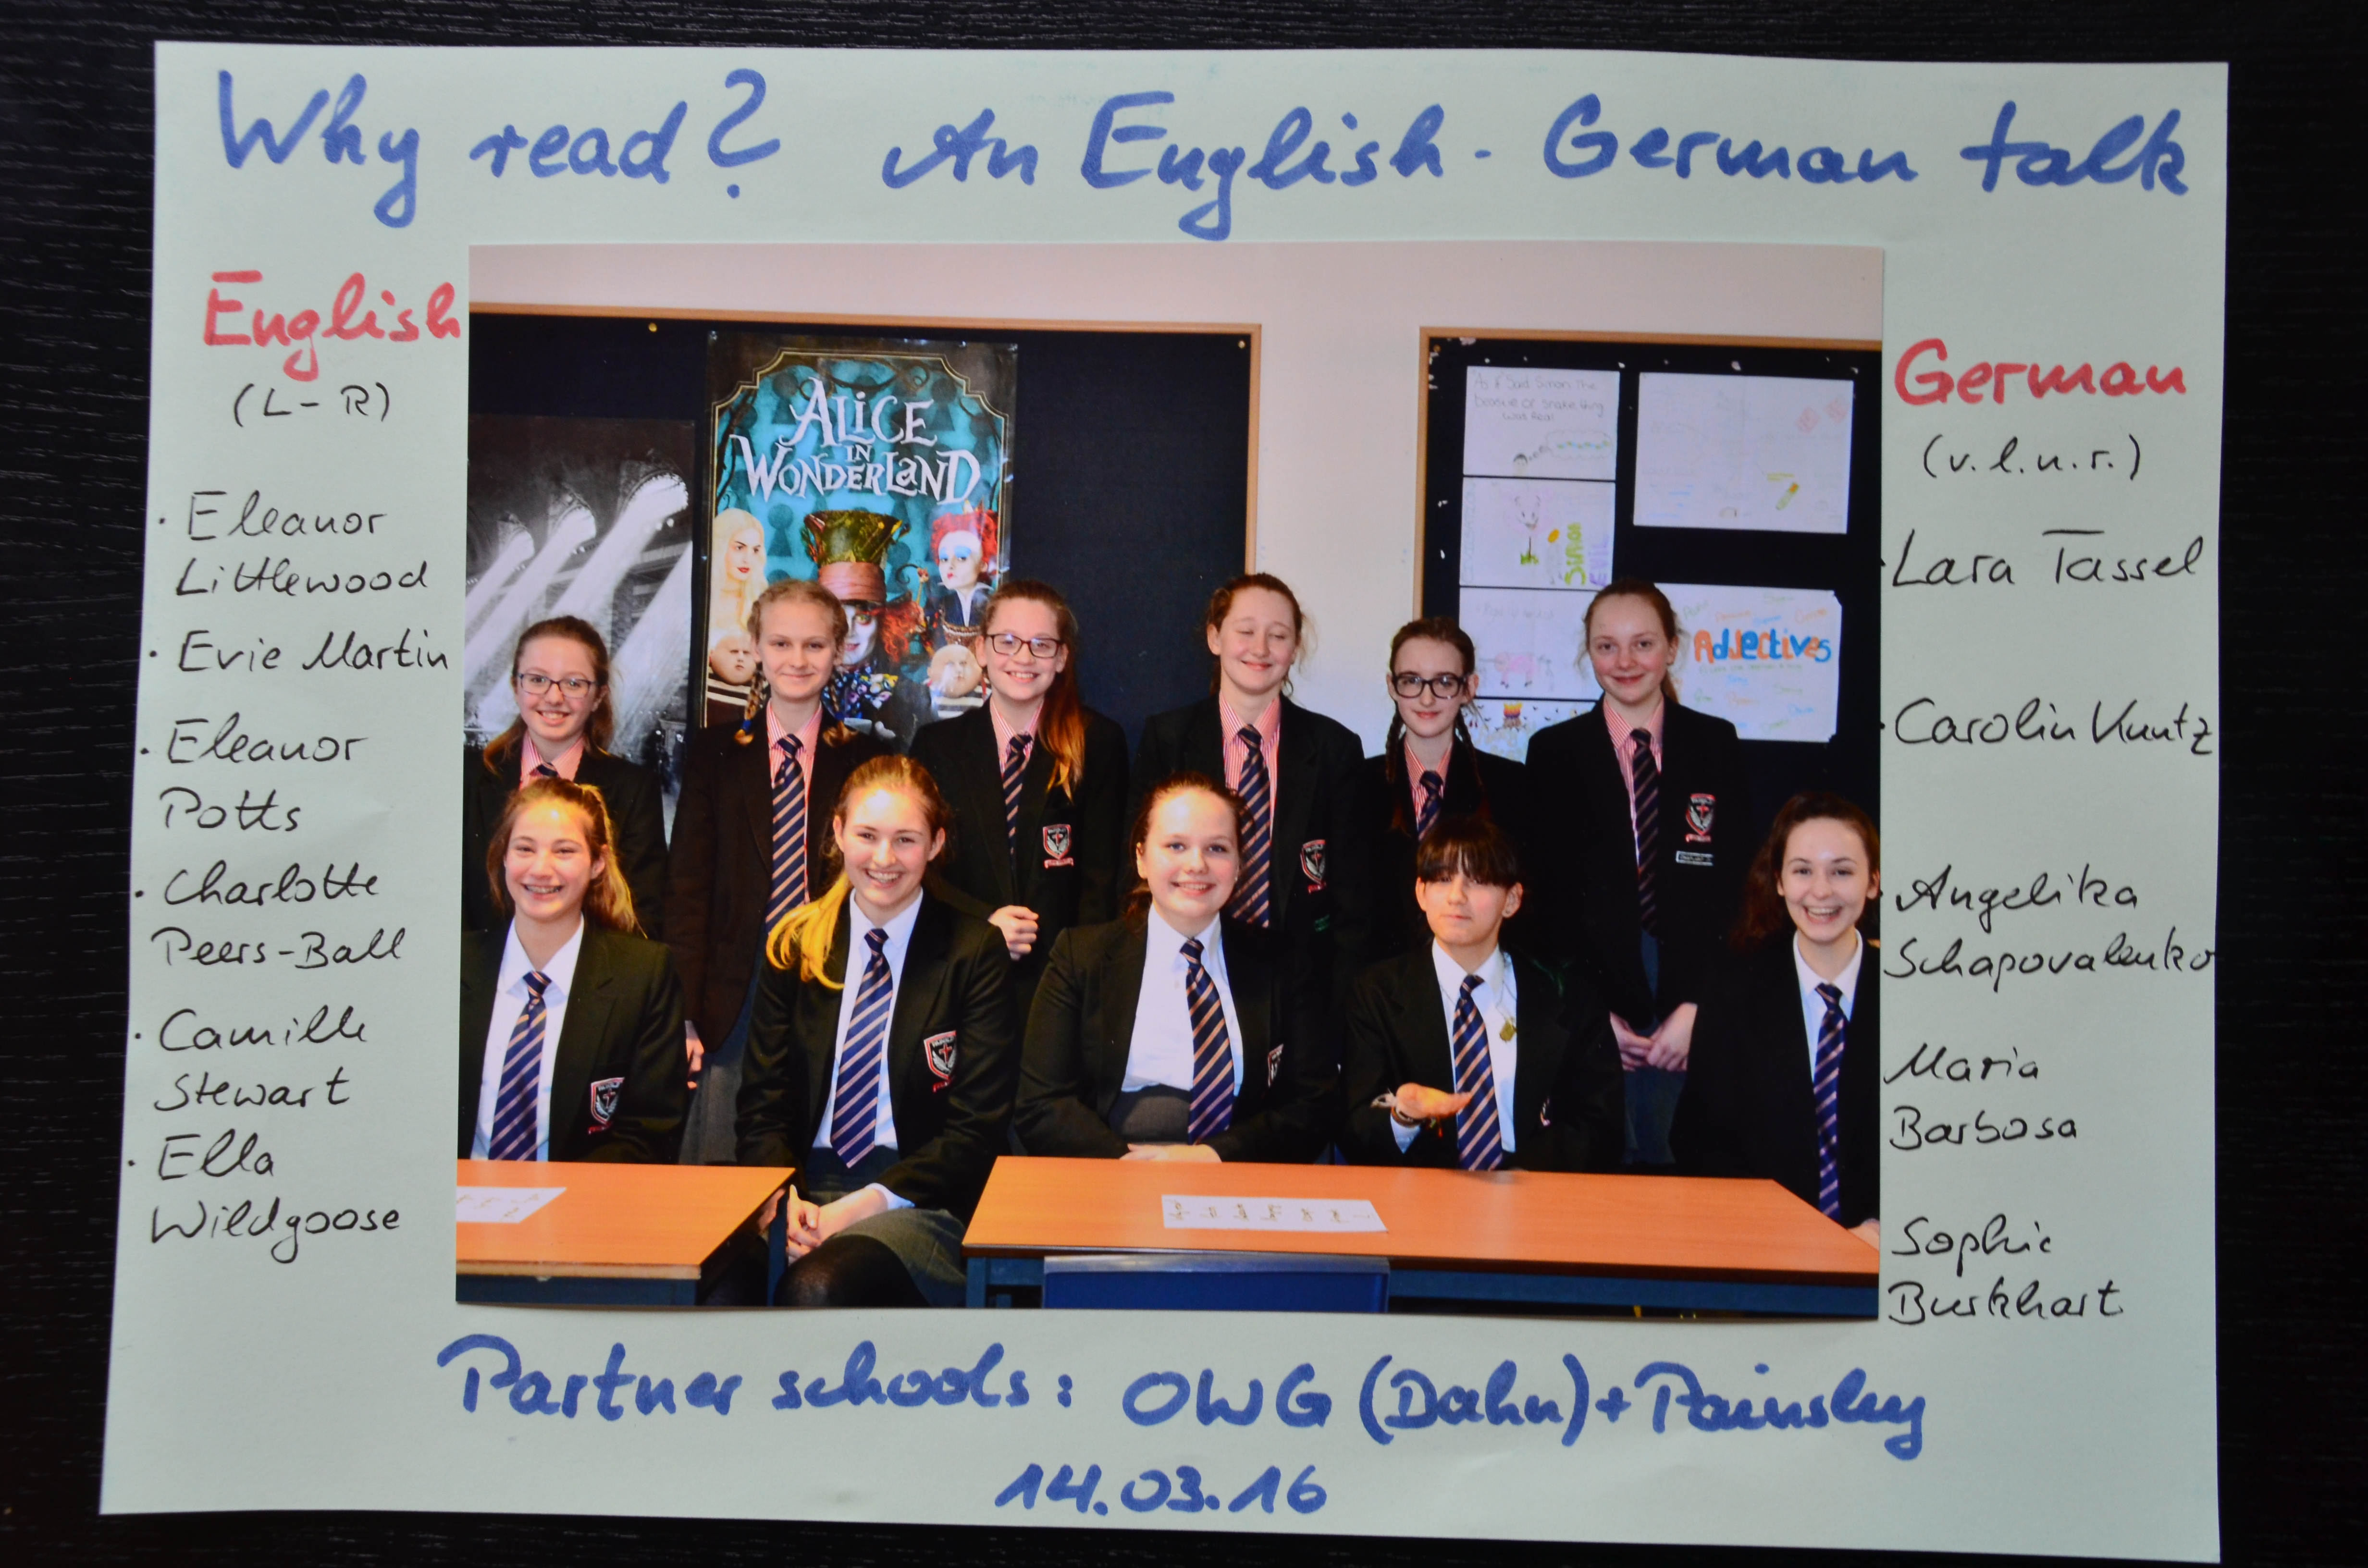 Why read? An English-German talk
English
(L-R)
· Eleanor
Littlewood
· Evie Martin
· Eleanor
Potts
· Charlotte
Peers-Ball
· Camille
Stewart
· Ella
Wildgoose
ALICE
IN
WONDERLAND
As if Said Simon the
Wad Real
SIMON
EVIL
Adjectives
German
(v.l.n.r.)
· Lara Tassel
· Carolin Kuntz
· Angelika
Schapovalenko
Maria
Barbosa
Sophie
Burkhart
Partner schools: OWG (Dahn) + Painsley
14.03.16